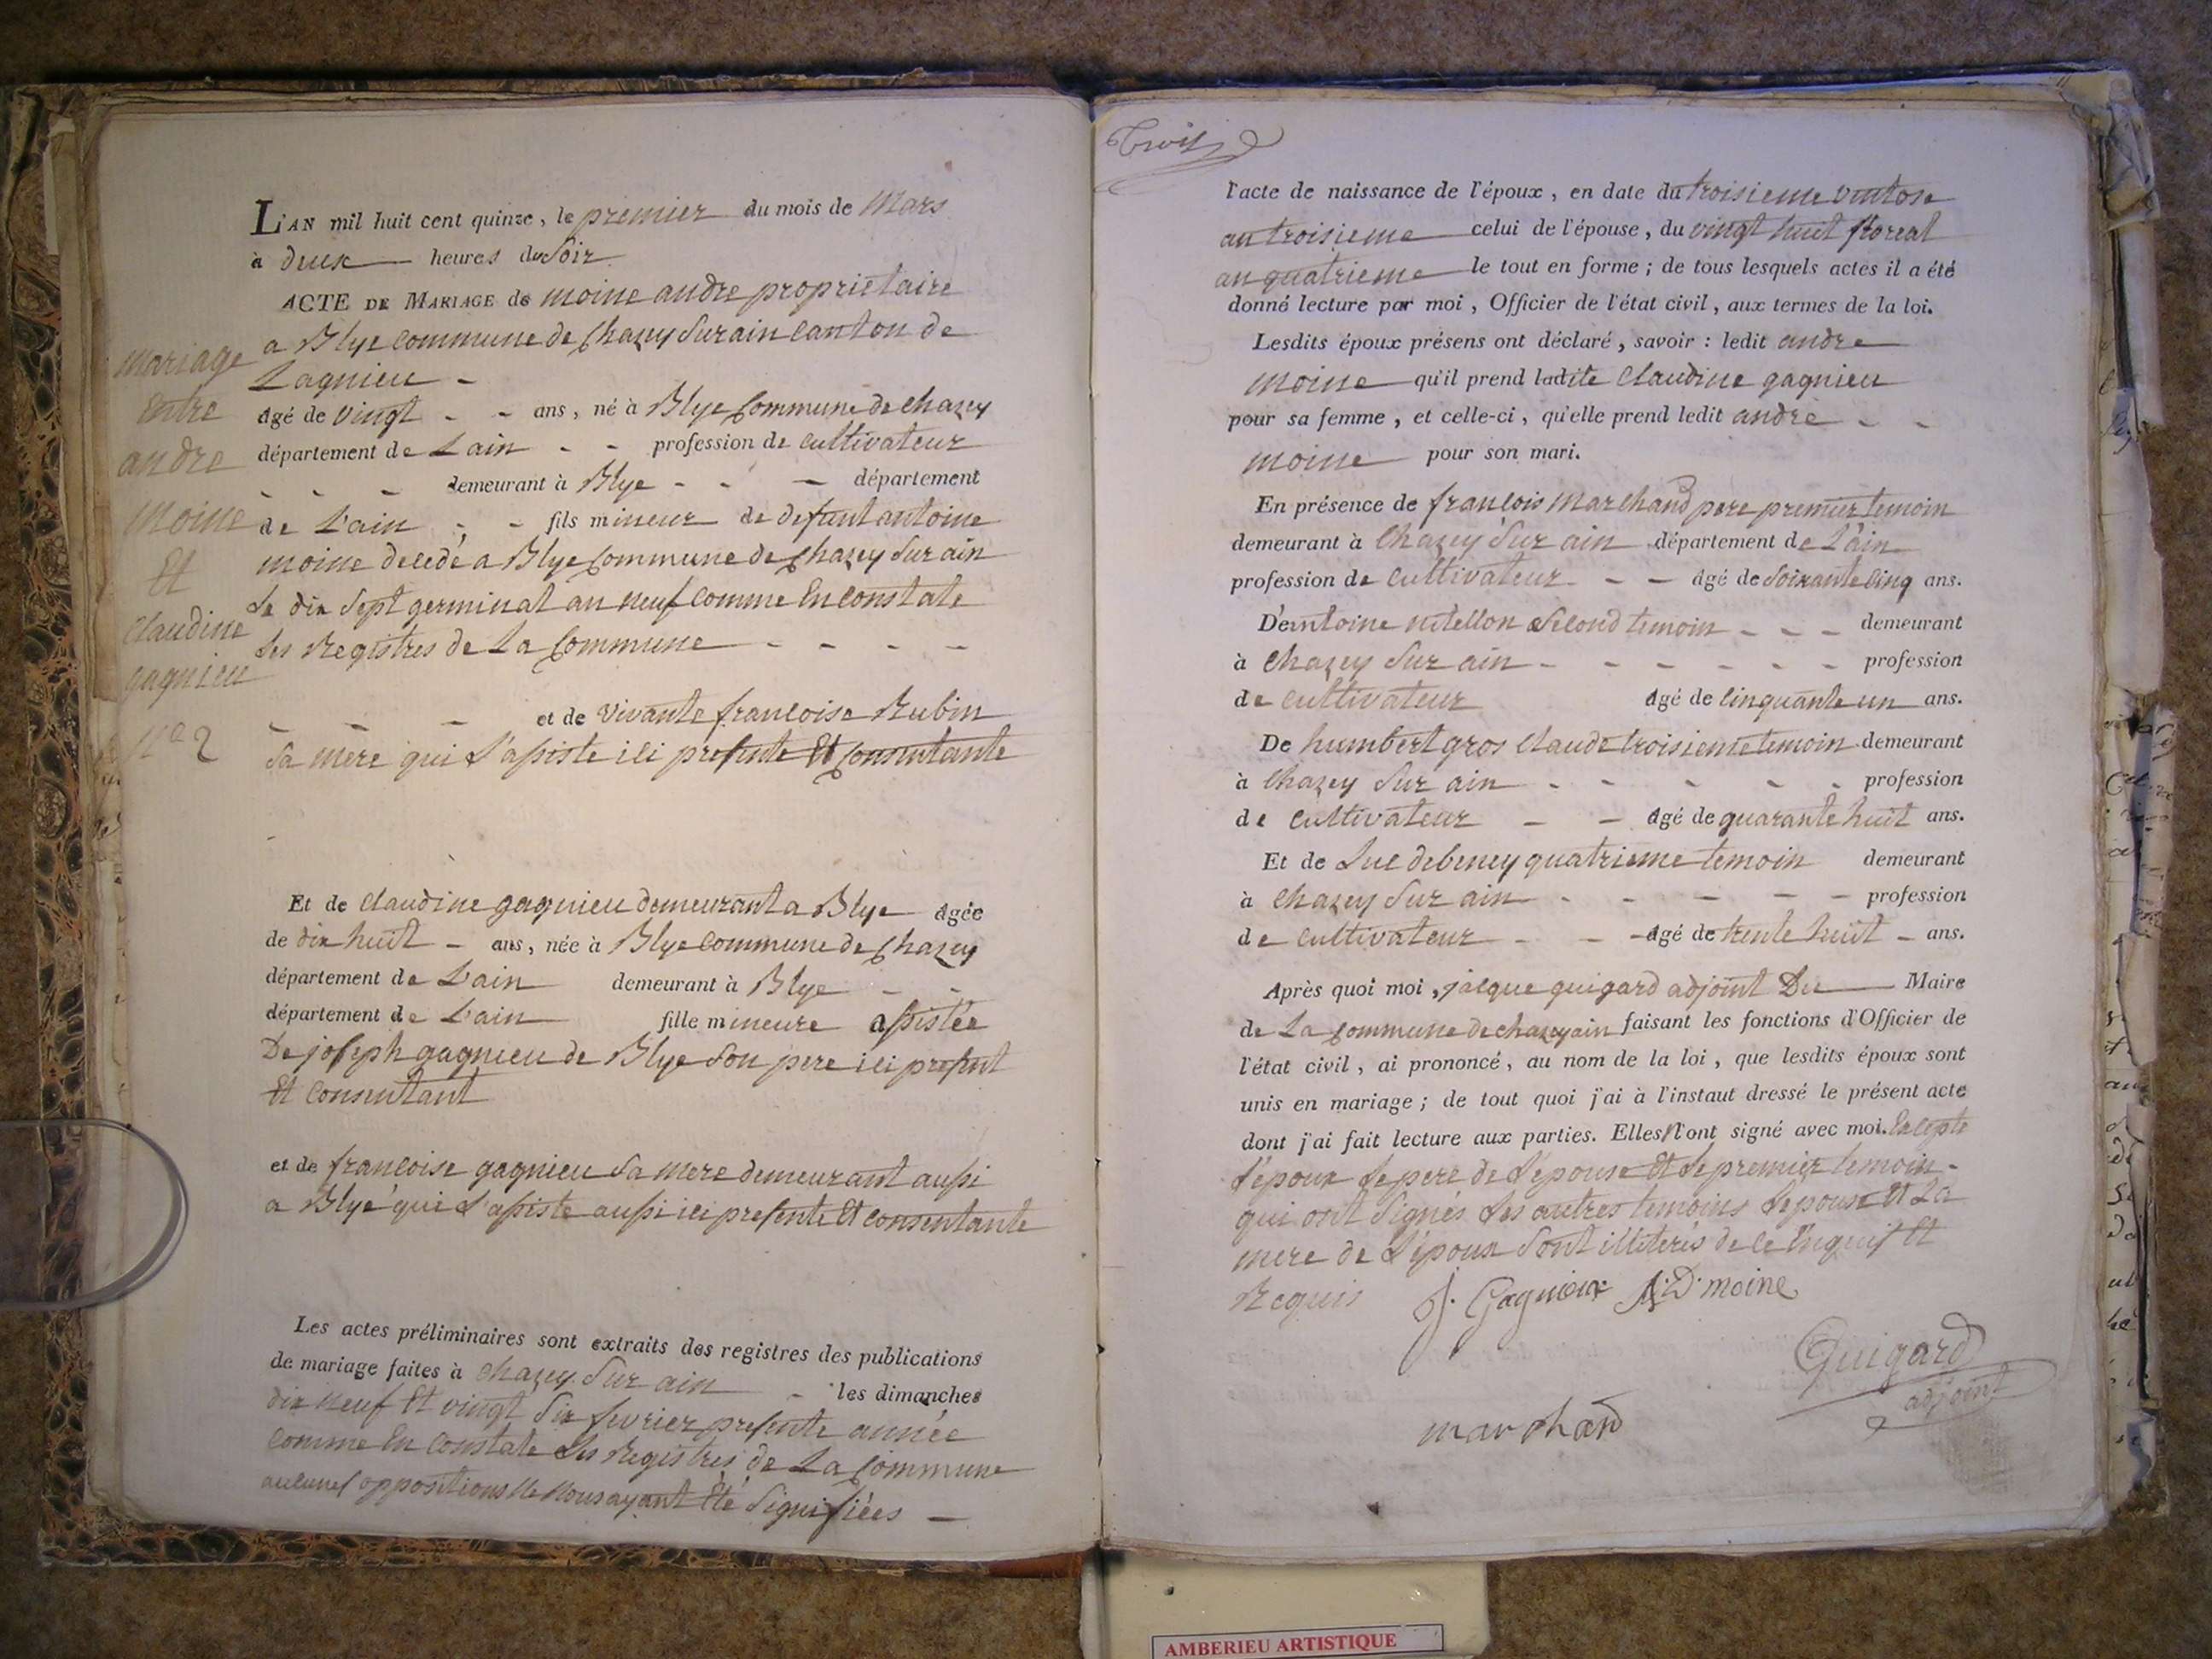 L'AN mil huit cent quinze, le premier du mois de Mars
à deux heures du Soir
ACTE DE MARIAGE de moine andre proprietaire
a Blye commune de Chazey Sur ain canton de
Lagnieu -
âgé de vingt - - ans, né à Blye Commune de chazey
département de Lain - - profession de cultivateur
- - - demeurant à Blye - - - département
de L'ain - - fils mineur de defunt antoine
moine decedé a Blye Commune de Chazey Sur ain
Le dix Sept germinal an neuf comme En constate
Les Registres de La Commune - - - -
- - - et de vivante francoise Rubin
Sa mere qui L'assiste ici presente Et Consentante
mariage
Entre
andre
moine
Et
Claudine
gagnieu
No 2
Et de claudine gagnieu demeurant a Blye âgée
de dix huit - ans, née à Blye Commune de Chazey
département de L'ain demeurant à Blye - -
département de L'ain fille mineure assistée
De joseph gagnieu de Blye Son pere ici present
Et Consentant
et de francoise gagnieu Sa mere demeurant aussi
a Blye qui L'assiste aussi ici presente Et consentante
Les actes préliminaires sont extraits des registres des publications
de mariage faites à Chazey Sur ain - les dimanches
dix neuf Et vingt Six fevrier presente année
comme En Constate Les Registres de La Commune
aucunes oppositions Ne Nous ayant Eté Signifiées -
Trois
l'acte de naissance de l'époux, en date du troisieme ventose
an troisieme celui de l'épouse, du vingt huit floreal
an quatrieme le tout en forme; de tous lesquels actes il a été
donné lecture par moi, Officier de l'état civil, aux termes de la loi.
Lesdits époux présens ont déclaré, savoir: ledit andre
moine qu'il prend ladite Claudine gagnieu
pour sa femme, et celle-ci, qu'elle prend ledit andre - -
moine pour son mari.
En présence de francois Marchand pere premier temoin
demeurant à Chazey Sur ain département de L'ain
profession de Cultivateur - - âgé de Soixante cinq ans.
D'entoine Second temoin - - - demeurant
à Chazey Sur ain - - - - - - profession
de cultivateur âgé de Cinquante un ans.
De humbert gros Claude troisieme temoin demeurant
à Chazey Sur ain - - - - - profession
de Cultivateur - - âgé de quarante huit ans.
Et de Luc debeney quatrieme temoin demeurant
à Chazey Sur ain - - - - - profession
de Cultivateur - - - âgé de trente huit - ans.
Après quoi moi, jacque guigard adjoint Du Maire
de La Commune de chazey ain faisant les fonctions d'Officier de
l'état civil, ai prononcé, au nom de la loi, que lesdits époux sont
unis en mariage; de tout quoi j'ai à l'instaut dressé le présent acte
dont j'ai fait lecture aux parties. Elles N'ont signé avec moi. Excepté
L'epoux Le pere de L'epouse Et Le premier temoin -
qui ont Signés Les autres temoins Lepouse Et La
mere de L'époux Sont illiterés de ce Enquis Et
Requis J. Gagnieux A.D. moine
Guigard
adjoint
marchand
AMBERIEU ARTISTIQUE